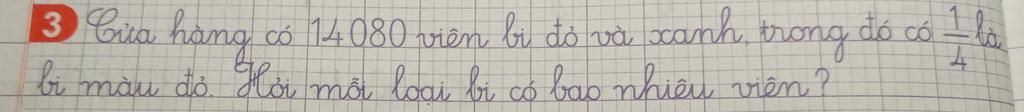 3 Cửa hàng có 14080 viên bi đỏ và xanh, trong đó có 1/4 là
bi màu đỏ. Hỏi mỗi loại bi có bao nhiêu viên?